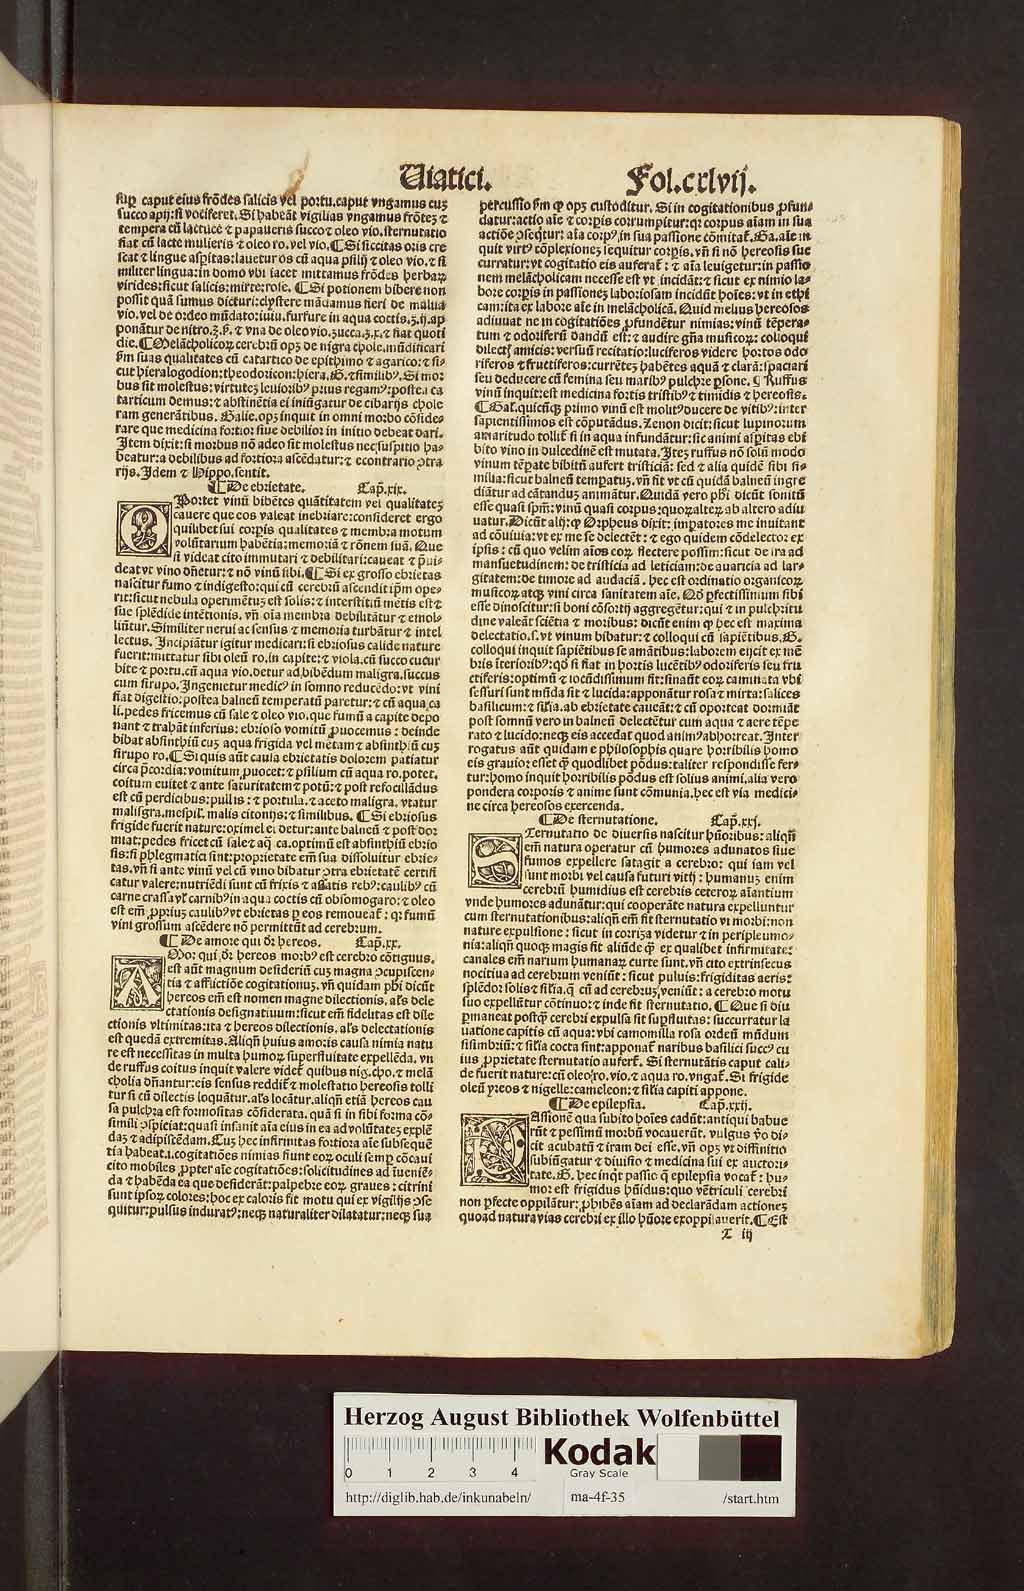 Uiatici.
Fol.cxlvij.
sup caput eius frōdes salicis vel portu.caput vngamus cuz
succo apij:si vociferet.Si habeāt vigilias vngamus frōtez ⁊
tempera cū lactuce ⁊ papaueris succo ⁊ oleo vio.sternutatio
fiat cū lacte mulieris ⁊ oleo ro.vel vio.¶Si siccitas oris cre
scat ⁊ lingue asp̄itas:lauetur os cū aqua psilij ⁊ oleo vio.⁊ si
militer lingua:in domo vbi iacet mittamus frōdes herbaꝝ
virides:sicut salicis:mirte:rose. ¶Si potionem bibere non
possit quā sumus dicturi:clystere mādamus fieri de malua
vio.vel de ordeo mūdato:iuiu.furfure in aqua coctis.ʒ.ij.ap
ponātur de nitro.ʒ.ß.⁊ vna de oleo vio.zucca.ʒ.x.⁊ fiat quoti
die.¶Melācholicoꝝ cerebrū opꝫ de nigra chole.mūdificari
ẜm suas qualitates cū catartico de epithimo ⁊ agarico:⁊ si-
cut hieralogodion:theodoricon:hiera.G.⁊ similibꝰ.Si mor
bus sit molestus:virtutez leuioribꝰ prius regamꝰ:postea ca
tarticum demus:⁊ abstinētia ei iniūgatur de cibarijs chole
ram generātibus. Galie.opꝫ inquit in omni morbo cōside-
rare que medicina fortior siue debilior in initio debeat dari.
Item dixit:si morbus nō adeo sit molestus nec suspitio ha-
beatur:a debilibus ad fortiora ascēdatur:⁊ econtrario ꝯtra
rijs.Idem ⁊ Hippo.sentit.
¶De ebrietate. Cap̄.xix.
OPortet vinū bibētes quātitatem vel qualitatez
cauere que eos valeat inebriare:consideret ergo
quilibet sui corpis qualitates ⁊ membra motum
volūtarium habētia:memoriā ⁊ rōnem suā. Que
si videat cito immutari ⁊ debilitari:caueat ⁊ p̄ui-
deat vt vino dn̄etur:⁊ nō vinū sibi.¶Si ex grosso ebrietas
nascitur fumo ⁊ indigesto:qui cū cerebrū ascendit ip̄m ope-
rit:sicut nebula operimētuz est solis:⁊ interstitiū mētis est ⁊
sue splēdide intētionis. vn̄ oīa membra debilitātur ⁊ emol-
liūtur.Similiter nerui ac sensus ⁊ memoria turbātur ⁊ intel
lectus. Incipiātur igitur medicari:si ebriosus calide nature
fuerit:mittatur sibi oleū ro.in capite:⁊ viola.cū succo cucur
bite ⁊ portu.cū aqua vio.detur ad bibēdum maligra.succus
cum sirupo.Ingemetur medicꝰ in somno reducēdo:vt vini
fiat digestio:postea balneū temperatū paretur:⁊ cū aqua ca
li.pedes fricemus cū sale ⁊ oleo vio.que fumū a capite depo
nant ⁊ trahāt inferius: ebrioso vomitū ꝓuocemus: deinde
bibat absinthiū cuz aqua frigida vel mētam ⁊ absinthiū cuz
sirupo ro.¶Si quis aūt causa ebrietatis dolorem patiatur
circa p̄cordia:vomitum ꝓuocet:⁊ psilium cū aqua ro.potet.
coitum euitet ⁊ ante saturitatem ⁊ potū:⁊ post refocillādus
est cū perdicibus:pullis:⁊ portula.⁊ aceto maligra.vtatur
malisgra.mespil̄.malis citonijs:⁊ similibus. ¶Si ebriosus
frigide fuerit nature:oximel ei detur:ante balneū ⁊ post dor
miat:pedes fricet cū sale ⁊ aq̄ ca.optimū est absinthiū ebrio
sis:si phlegmatici sint:proprietate em̄ sua dissoluitur ebrie-
tas.vn̄ si ante vinū vel cū vino bibatur ꝯtra ebrietatē certifi
catur valere:nutriēdi sunt cū frixis ⁊ assatis rebꝰ:caulibꝰ cū
carne crassa vl̓ carnibꝰ in aqua coctis cū obsomogaro:⁊ oleo
est em̄ ꝓprius caulibꝰ vt ebrietas p eos remoueat̄: qꝛ fumū
vini grossum ascēdere nō permittūt ad cerebrum.
¶De amore qui dr̄ hereos. Cap̄.xx.
AMor qui dr̄ hereos morbꝰ est cerebro cōtiguus.
est aūt magnum desideriū cuz magna ꝯcupiscen-
tia ⁊ afflictiōe cogitationuz. vn̄ quidam phī dicūt
hereos em̄ est nomen magne dilectionis. als̄ dele
ctationis designatiuum:sicut em̄ fidelitas est dile
ctionis vltimitas:ita ⁊ hereos dilectionis. als̄ delectationis
est quedā extremitas.Aliqn̄ huius amoris causa nimia natu
re est necessitas in multa humoꝝ superfluitate expellēda. vn
de ruffus coitus inquit valere videt̄ quibus nig.cho.⁊ melā
cholia dn̄antur:eis sensus reddit̄ ⁊ molestatio hereosis tolli
tur si cū dilectis loquātur.als̄ locātur.aliqn̄ etiā hereos cau
sa pulchra est formositas cōsiderata. quā si in sibi forma cō-
simili ꝯspiciat:quasi insanit aīa eius in ea ad volūtatez explē
daz ⁊ adipiscēdam.Cuz hec infirmitas fortiora aīe subsequē
tia habeat.i.cogitatiōes nimias fiunt eoꝝ oculi semp cōcaui
cito mobiles ꝓpter aīe cogitatiōes:solicitudines ad īueniē-
da ⁊ habēda ea que desiderāt:palpebre eoꝝ graues: citrini
sunt ipsoꝝ colores:hoc ex caloris fit motu qui ex vigilijs ꝯse
quitur:pulsus induratꝰ:neqꝫ naturaliter dilatatur:neqꝫ sua
percussio ẜm ꝙ opꝫ custoditur. Si in cogitationibus ꝓfun-
datur:actio aīe ⁊ corpis corrumpitur:qꝛ corpus aīam in sua
actiōe ꝯseqtur:aīa corpꝰ in sua passione cōmitat̄.Ga.aīe in
quit virtꝰ cōplexionez sequitur corpis.vn̄ si nō hereosis suc
curratur:vt cogitatio eis auferat̄: ⁊ aīa leuigetur:in passio
nem melācholicam necesse est vt incidāt:⁊ sicut ex nimio la-
bore corpis in passionez laboriosam incidūt hoīes:vt in ethi
cam:ita ex labore aīe in melācholicā. Quid melius hereosos
adiuuat ne in cogitatiōes ꝓfundētur nimias:vinū tēpera-
tum ⁊ odoriferū dandū est:⁊ audire gn̄a musicoꝝ: colloqui
dilectꝭ amicis: versuū recitatio:luciferos videre hortos odo
riferos ⁊ fructiferos:currētez habētes aquā ⁊ clarā:spaciari
seu deducere cū femina seu maribꝰ pulchre psone. ¶ Ruffus
vinū inquit:est medicina fortis tristibꝰ ⁊ timidis ⁊ hereosis.
¶Gal.quicūqꝫ primo vinū est molitꝰ ducere de vitibꝰ:inter
sapientissimos est cōputādus.Zenon dicit:sicut lupinorum
amaritudo tollit̄ si in aqua infundātur:sic animi asp̄itas ebi
bito vino in dulcedinē est mutata.Itez ruffus nō solū modo
vinum tēp̄ate bibitū aufert tristiciā: sed ⁊ alia quidē sibi si-
milia:sicut balneū temp̄atuz.vn̄ fit vt cū quidā balneū ingre
diātur ad cātanduz animātur.Quidā vero phī dicūt sonitū
esse quasi sp̄m: vinū quasi corpus:quoꝝ alteꝝ ab altero adiu
uatur.Dicūt alij:ꝙ Orpheus dixit: imp̄atores me inuitant
ad cōuiuia:vt ex me se delectēt: ⁊ ego quidem cōdelector ex
ipsis: cū quo velim aīos eoꝝ flectere possim:sicut de ira ad
mansuetudinem: de tristicia ad leticiam:de auaricia ad lar-
gitatem:de timore ad audaciā. hec est ordinatio organicoꝝ
musicoꝝ atqꝫ vini circa sanitatem aīe. Qd̓ pfectissimum sibi
esse dinoscitur:si boni cōsortij aggregētur:qui ⁊ in pulchritu
dine valeāt sciētia ⁊ moribus: dicūt enim ꝙ hec est maxima
delectatio.s.vt vinum bibatur:⁊ colloqui cū sapiētibus.G.
colloqui inquit sapiētibus se amātibus:laborem eijcit ex mē
bris īterioribꝰ:qd̓ si fiat in hortis lucētibꝰ odoriferis seu fru
ctiferis:optimū ⁊ iocūdissimum fit:sin aūt eoꝝ caminata vbi
sessuri sunt mūda sit ⁊ lucida:apponātur rosa ⁊ mirta:salices
basilicum:⁊ sil̓ia.ab ebrietate caueāt:⁊ cū oporteat dormiāt
post somnū vero in balneū delectētur cum aqua ⁊ aere tēpe
rato ⁊ lucido:neqꝫ eis accedat quod animꝰ abhorreat.Inter
rogatus aūt quidam e philosophis quare horribilis homo
eis grauior esset ꝙ quodlibet pōdus:taliter respondisse fer-
tur:homo inquit horribilis pōdus est solius animi.alia vero
pondera corporis ⁊ anime sunt cōmunia.hec est via medici-
ne circa hereosos exercenda.
¶De sternutatione. Cap̄.xxj.
STernutatio de diuersis nascitur hūoribus:aliqn̄
em̄ natura operatur cū humores adunatos siue
fumos expellere satagit a cerebro: qui iam vel
sunt morbi vel causa futuri vitij: humanuz enim
cerebrū humidius est cerebris ceteroꝝ aīantium
vnde humores adunātur:qui cooperāte natura expelluntur
cum sternutationibus:aliqn̄ em̄ fit sternutatio vi morbi:non
nature expulsione: sicut in corriza videtur ⁊ in peripleumo-
nia:aliqn̄ quoqꝫ magis fit aliūde ꝙ ex qualibet infirmitate:
canales em̄ narium humanaꝝ curte sunt.vn̄ cito extrinsecus
nocitiua ad cerebrum veniūt: sicut puluis:frigiditas aeris:
splēdor solis ⁊ sil̓ia.q̄ cū ad cerebruz veniūt: a cerebro motu
suo expellūtur cōtinuo:⁊ inde fit sternutatio. ¶Que si diu
pmaneat postqꝫ cerebri expulsa sit supfluitas: succurratur la
uatione capitis cū aqua: vbi camomilla rosa ordeū mūdum
sisimbriū:⁊ sil̓ia cocta sint:apponat̄ naribus basilici succꝰ cu
ius ꝓprietate sternutatio aufert̄. Si sternutātis caput cali-
de fuerit nature:cū oleo ro.vio.⁊ aqua ro.vngat̄.Si frigide
oleū yreos ⁊ nigelle:cameleon:⁊ sil̓ia capiti appone.
¶De epilepsia. Cap̄.xxij.
PAssionē qua subito hoīes cadūt:antiqui habue
rūt ⁊ pessimū morbū vocauerūt. vulgus ṽo di-
cit acubatū ⁊ iram dei esse.vn̄ opꝫ vt diffinitio
subiūgatur ⁊ diuisio ⁊ medicina sui ex auctori-
tate.G. hec inqt passio q̄ epilepsia vocat̄: hu-
mor est frigidus hūidus:quo vētriculi cerebri
non pfecte oppilātur: ꝓhibēs aīam ad declarādam actionez
quoad natura vias cerebri ex illo hūore exoppilauerit.¶Est
T iij
Herzog August Bibliothek Wolfenbüttel
Kodak
Gray Scale
0 1 2 3 4
http://diglib.hab.de/inkunabeln/ ma-4f-35 /start.htm